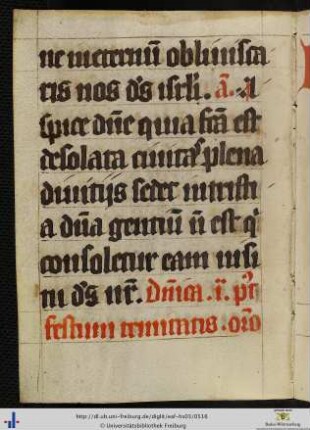 ne in eternū obliuisca
ris nos dʼs isrl̄. ā. A
spice dn̄e quia fc̄a est
desolata ciuitas plena
diuitijs sedet in tristi
a dn̄a gentiū n̄ est qʼ
consoletur eam nisi
tu dʼs nr̄. Dn̄ica .i. pʼt
festum trinitatis . orō
http://dl.ub.uni-freiburg.de/diglit/
© Universitätsbibliothek Freiburg
Baden-Württemberg